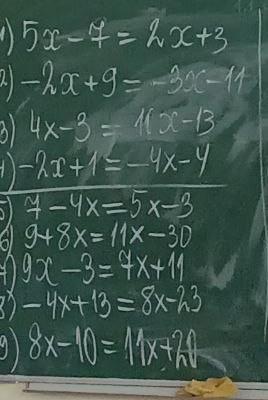 1) 5x-7=2x+3
2) -2x+9=-3x-11
3) 4x-3=11x-13
4) -2x+1=-4x-4
5) 7-4x=5x-3
6) 9+8x=11x-30
7) 9x-3=7x+11
8) -4x+13=8x-23
9) 8x-10=11x+20